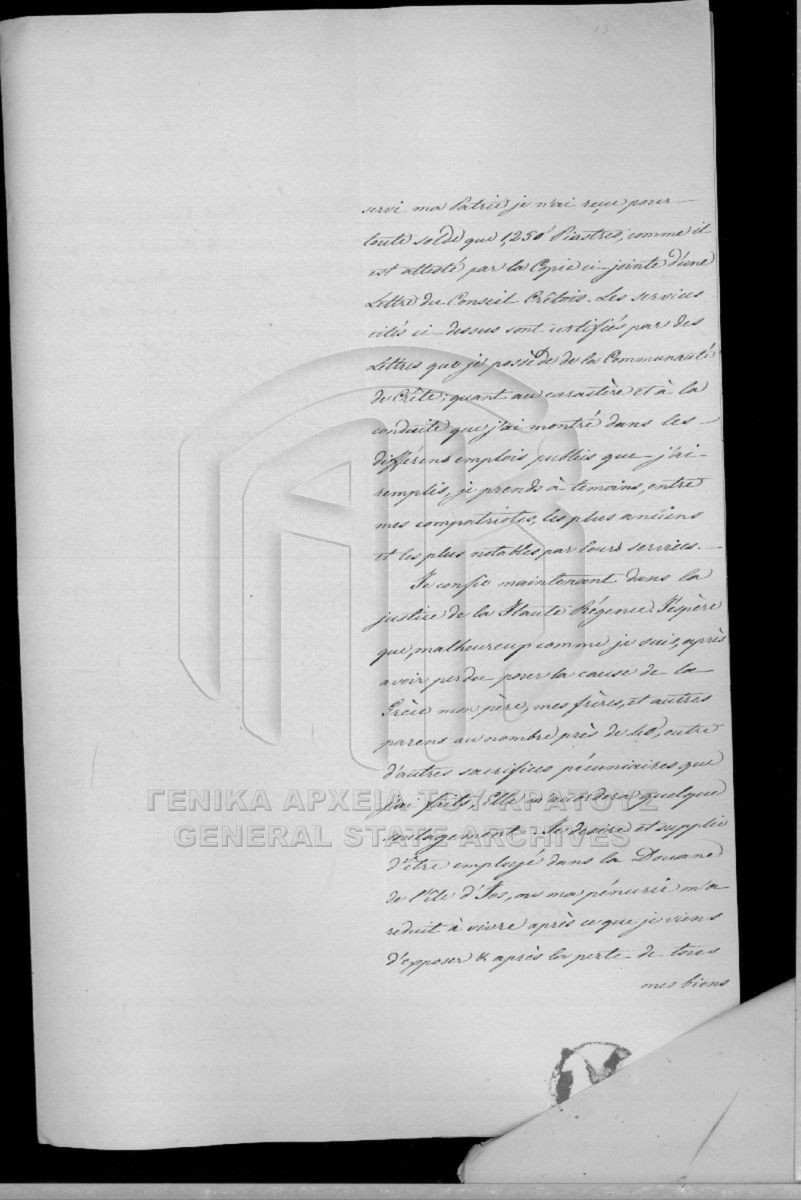 13
servi ma Patrie je n'ai reçu pour
toute solde que 1,250 Piastres, comme il
est attesté par la Copie ci-jointe d'une
Lettre du Conseil Crétois. Les services
cités ci dessus sont certifiés par des
Lettres que je possède de la Communauté
de Crète; quant au caractère et à la
conduite que j'ai montré dans les
différens emplois publics que j'ai
remplis, je prends à temoins, entre
mes compatriotes, les plus anciens
et les plus notables par leurs services.
Je confie maintenant dans la
justice de la Haute Régence. J'éspère
que, malheureux comme je suis, après
avoir perdu pour la cause de la
Grèce mon père, mes frères, et autres
parens au nombre près de 40, outre
d'autres sacrifices pécuniaires que
j'ai faits, Elle m'accordera quelque
soulagement. Je desire et supplie
d'être employé dans la Douane
de l'île d'Ios, où ma pénurie m'a
reduit à vivre après ce que je viens
d'exposer & après la perte de tous
mes biens
ΓΕΝΙΚΑ ΑΡΧΕΙΑ ΤΟΥ ΚΡΑΤΟΥΣ
GENERAL STATE ARCHIVES